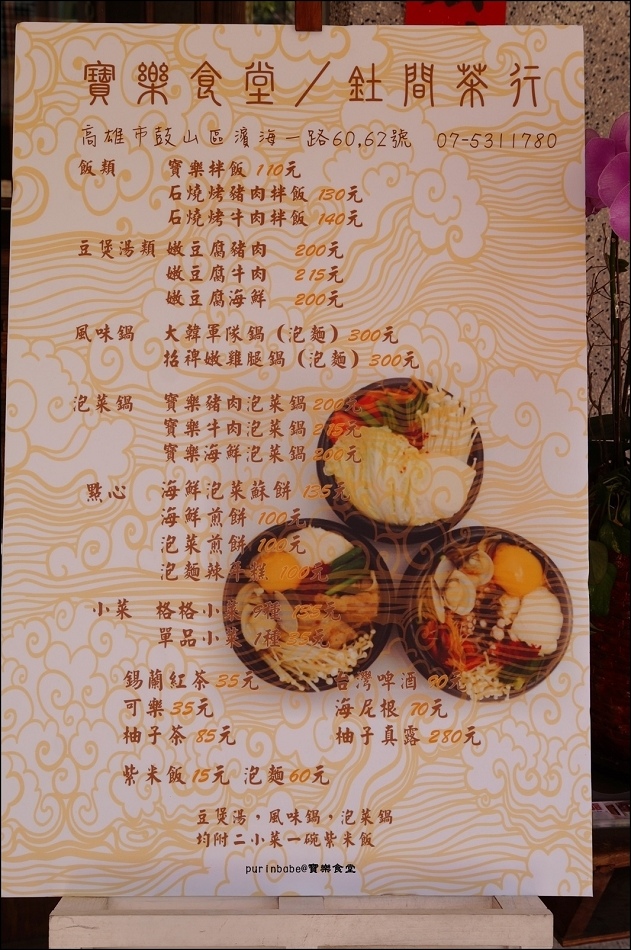 寶樂食堂/釷間茶行
高雄市鼓山區濱海一路60,62號 07-5311780
飯類 寶樂拌飯 110元
石燒烤豬肉拌飯 130元
石燒烤牛肉拌飯 140元
豆煲湯類 嫩豆腐豬肉 200元
嫩豆腐牛肉 215元
嫩豆腐海鮮 200元
風味鍋 大韓軍隊鍋(泡麵) 300元
招牌嫩雞腿鍋(泡麵) 300元
泡菜鍋 寶樂豬肉泡菜鍋 200元
寶樂牛肉泡菜鍋 215元
寶樂海鮮泡菜鍋 200元
點心 海鮮泡菜蘇餅 135元
海鮮煎餅 100元
泡菜煎餅 100元
泡麵辣年糕 100元
小菜 格格小菜
單品小菜 1種
錫蘭紅茶 35元 台灣啤酒 90元
可樂 35元 海尼根 70元
柚子茶 85元 柚子真露 280元
紫米飯 15元 泡麵 60元
豆煲湯,風味鍋,泡菜鍋
均附二小菜一碗紫米飯
purinbabe@寶樂食堂